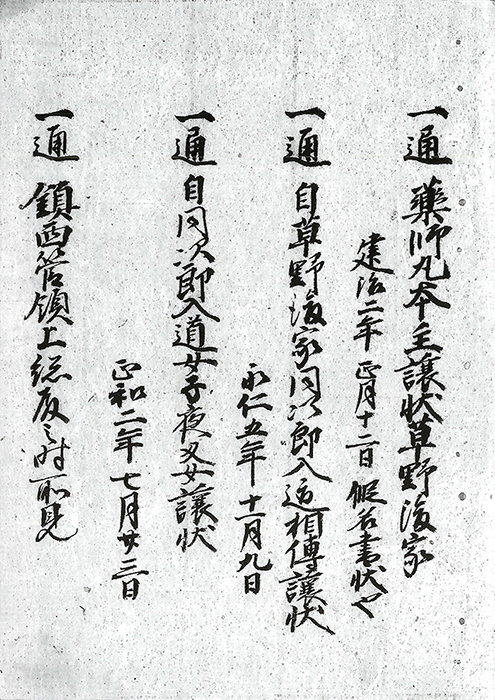 一通 藥師丸本主讓状草野後家
建治二年 正月十二日 假名書状也
一通 自草野後家同次郎入道相傳讓状
永仁五年十一月九日
一通 自同次郎入道女子夜叉女讓状
正和二年七月廿三日
一通 鎮西管領上総殿之時所見